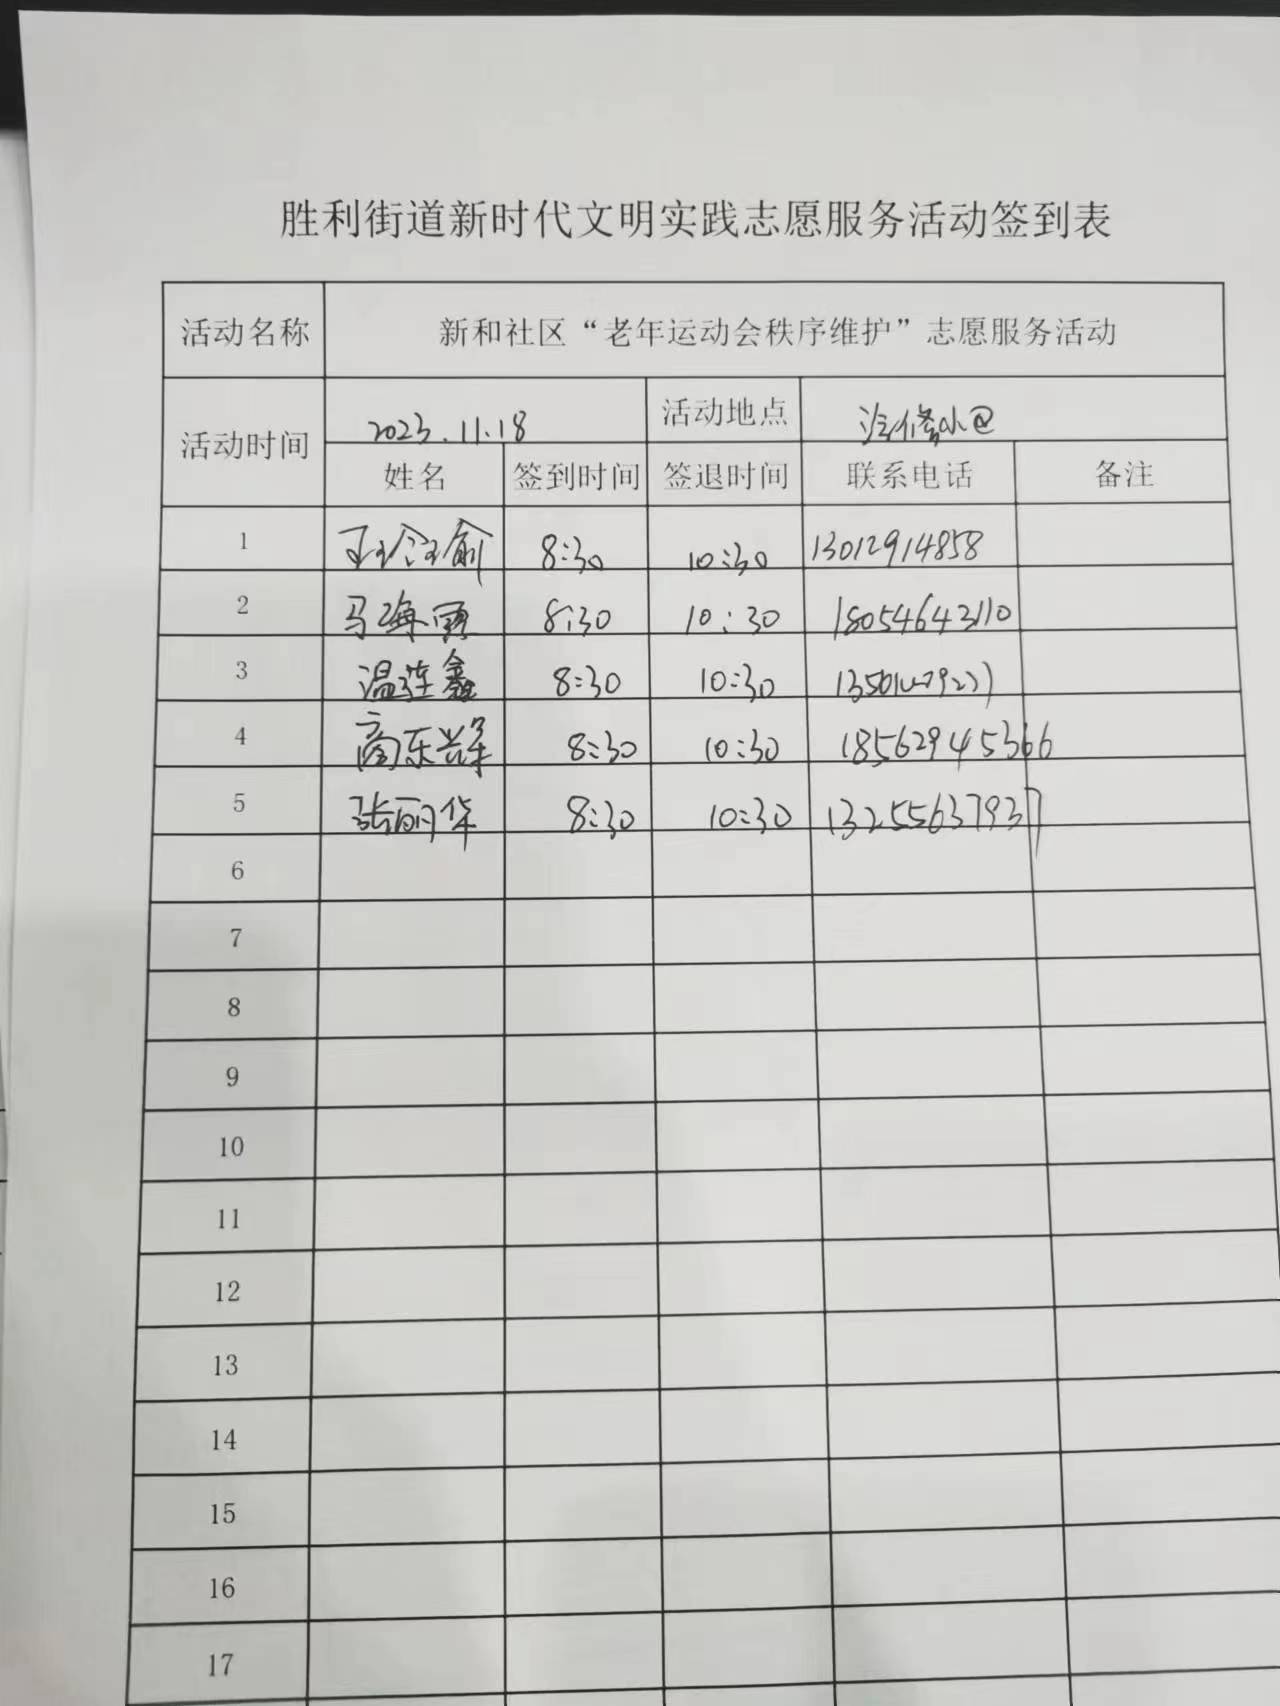 胜利街道新时代文明实践志愿服务活动签到表
活动名称 新和社区“老年运动会秩序维护”志愿服务活动
活动时间 2023.11.18 活动地点
姓名 签到时间 签退时间 联系电话 备注
1 8:30 10:30 13012914858
2 马海丽 8:30 10:30 18054643110
3 温连鑫 8:30 10:30
4 商东兴 8:30 10:30 18562945366
5 张丽华 8:30 10:30 13255637937
6
7
8
9
10
11
12
13
14
15
16
17